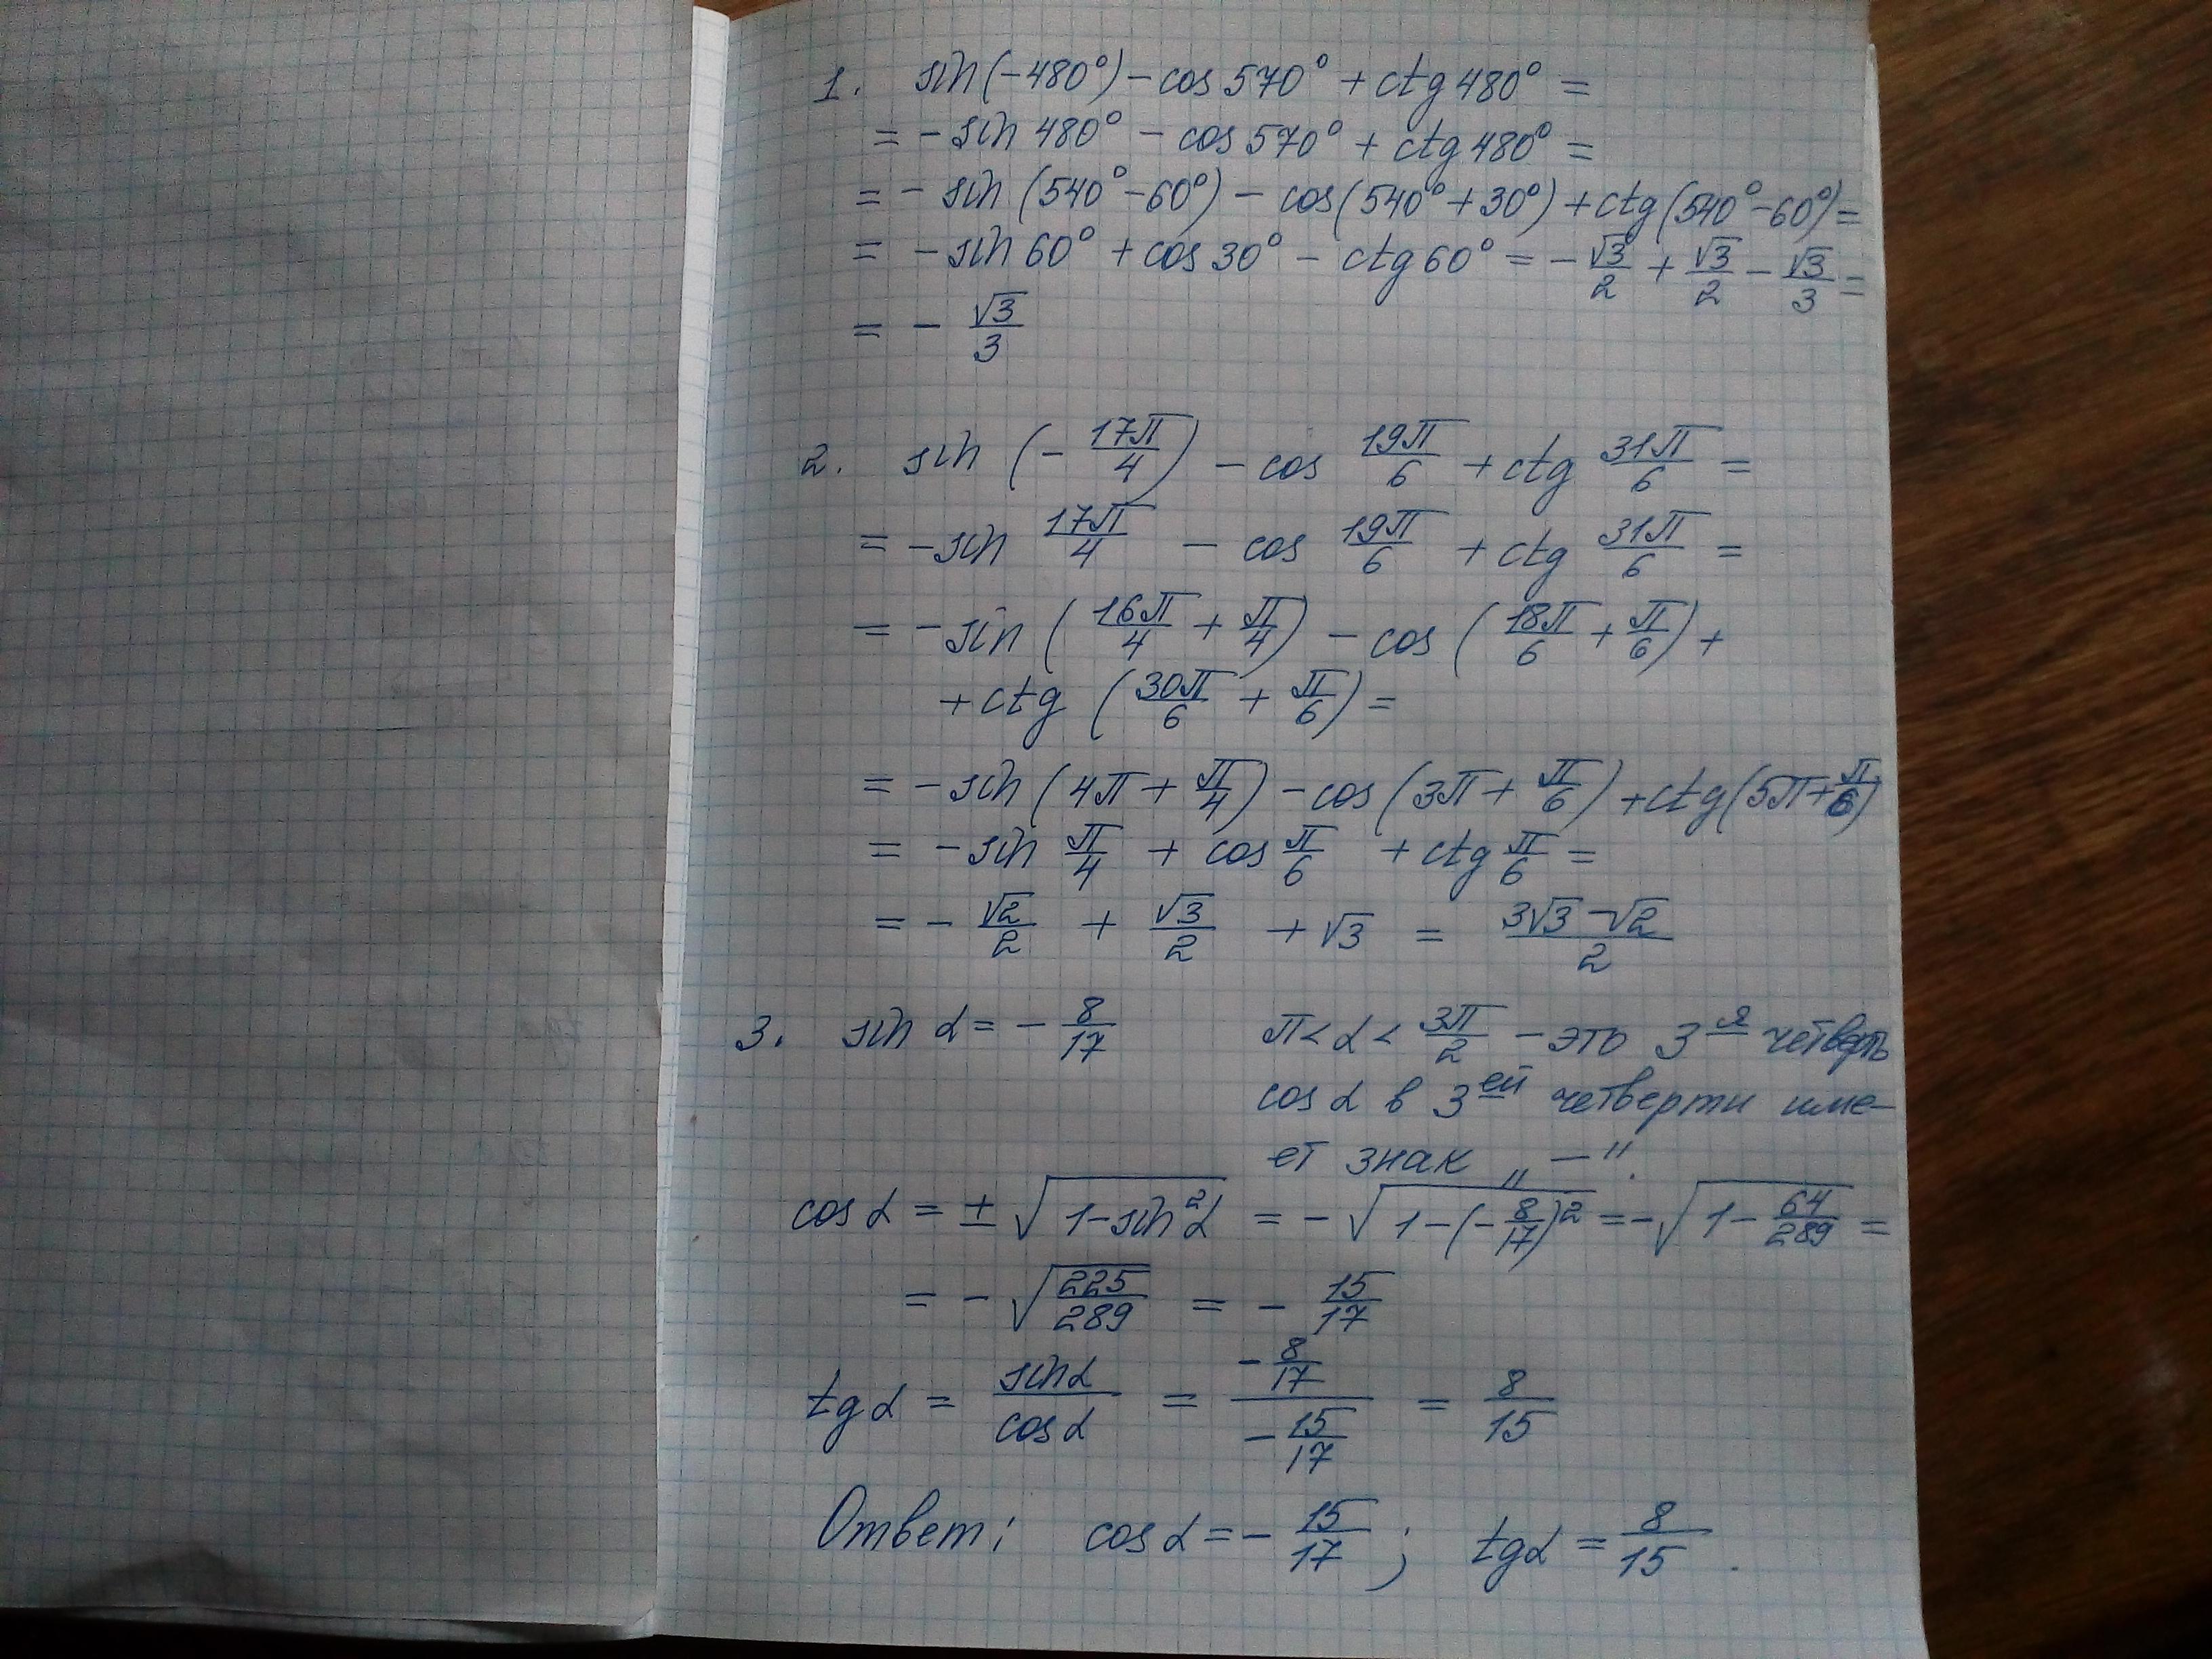 1. sin(-480°) - cos 570° + ctg 480° =
= - sin 480° - cos 570° + ctg 480° =
= - sin (540° - 60°) - cos(540° + 30°) + ctg(540° - 60°) =
= - sin 60° + cos 30° - ctg 60° = - √3/2 + √3/2 - √3/3 =
= - √3/3
2. sin (- 17π/4) - cos 19π/6 + ctg 31π/6 =
= - sin 17π/4 - cos 19π/6 + ctg 31π/6 =
= - sin (16π/4 + π/4) - cos (18π/6 + π/6) +
+ ctg (30π/6 + π/6) =
= - sin (4π + π/4) - cos (3π + π/6) + ctg(5π + π/6)
= - sin π/4 + cos π/6 + ctg π/6 =
= - √2/2 + √3/2 + √3 = (3√3 - √2)/2
3. sin α = - 8/17 π < α < 3π/2 - это 3я четверть
cos α в 3ей четверти име-
ет знак „-".
cos α = ± √(1 - sin²α) = - √(1 - (- 8/17)²) = - √(1 - 64/289) =
= - √(225/289) = - 15/17
tg α = sin α/cos α = (- 8/17)/(- 15/17) = 8/15
Ответ: cos α = - 15/17 ; tg α = 8/15 .